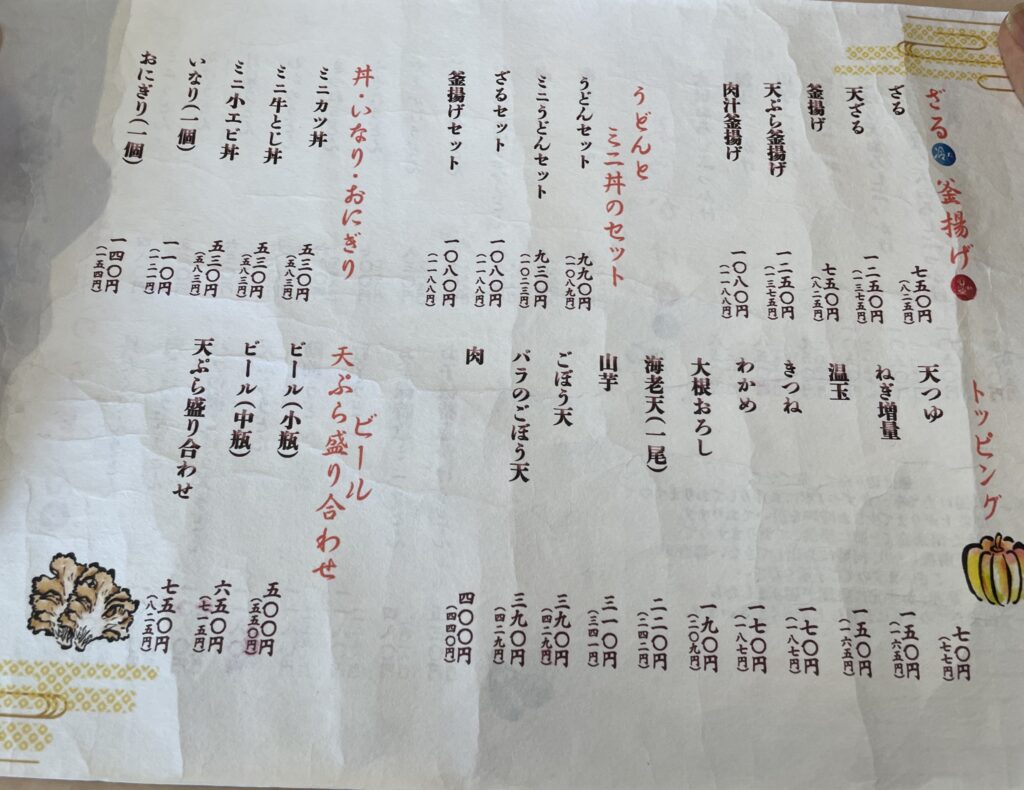 ざる冷 釜揚げ温
ざる 七五〇円 (八二五円)
天ざる 一二五〇円 (一三七五円)
釜揚げ 七五〇円 (八二五円)
天ぷら釜揚げ 一二五〇円 (一三七五円)
肉汁釜揚げ 一〇八〇円 (一一八八円)
うどんと
ミニ丼のセット
うどんセット 九九〇円 (一〇八九円)
ミニうどんセット 九三〇円 (一〇二三円)
ざるセット 一〇八〇円 (一一八八円)
釜揚げセット 一〇八〇円 (一一八八円)
丼・いなり・おにぎり
ミニカツ丼 五三〇円 (五八三円)
ミニ牛とじ丼 五三〇円 (五八三円)
ミニ小エビ丼 五三〇円 (五八三円)
いなり(一個) 一一〇円 (一二一円)
おにぎり(一個) 一四〇円 (一五四円)
トッピング
天つゆ 七〇円 (七七円)
ねぎ増量 一五〇円 (一六五円)
温玉 一五〇円 (一六五円)
きつね 一七〇円 (一八七円)
わかめ 一七〇円 (一八七円)
大根おろし 一九〇円 (二〇九円)
海老天(一尾) 二二〇円 (二四二円)
山芋 三一〇円 (三四一円)
ごぼう天 三九〇円 (四二九円)
バラのごぼう天 三九〇円 (四二九円)
肉 四〇〇円 (四四〇円)
ビール
天ぷら盛り合わせ
ビール(小瓶) 五〇〇円 (五五〇円)
ビール(中瓶) 六五〇円 (七一五円)
天ぷら盛り合わせ 七五〇円 (八二五円)